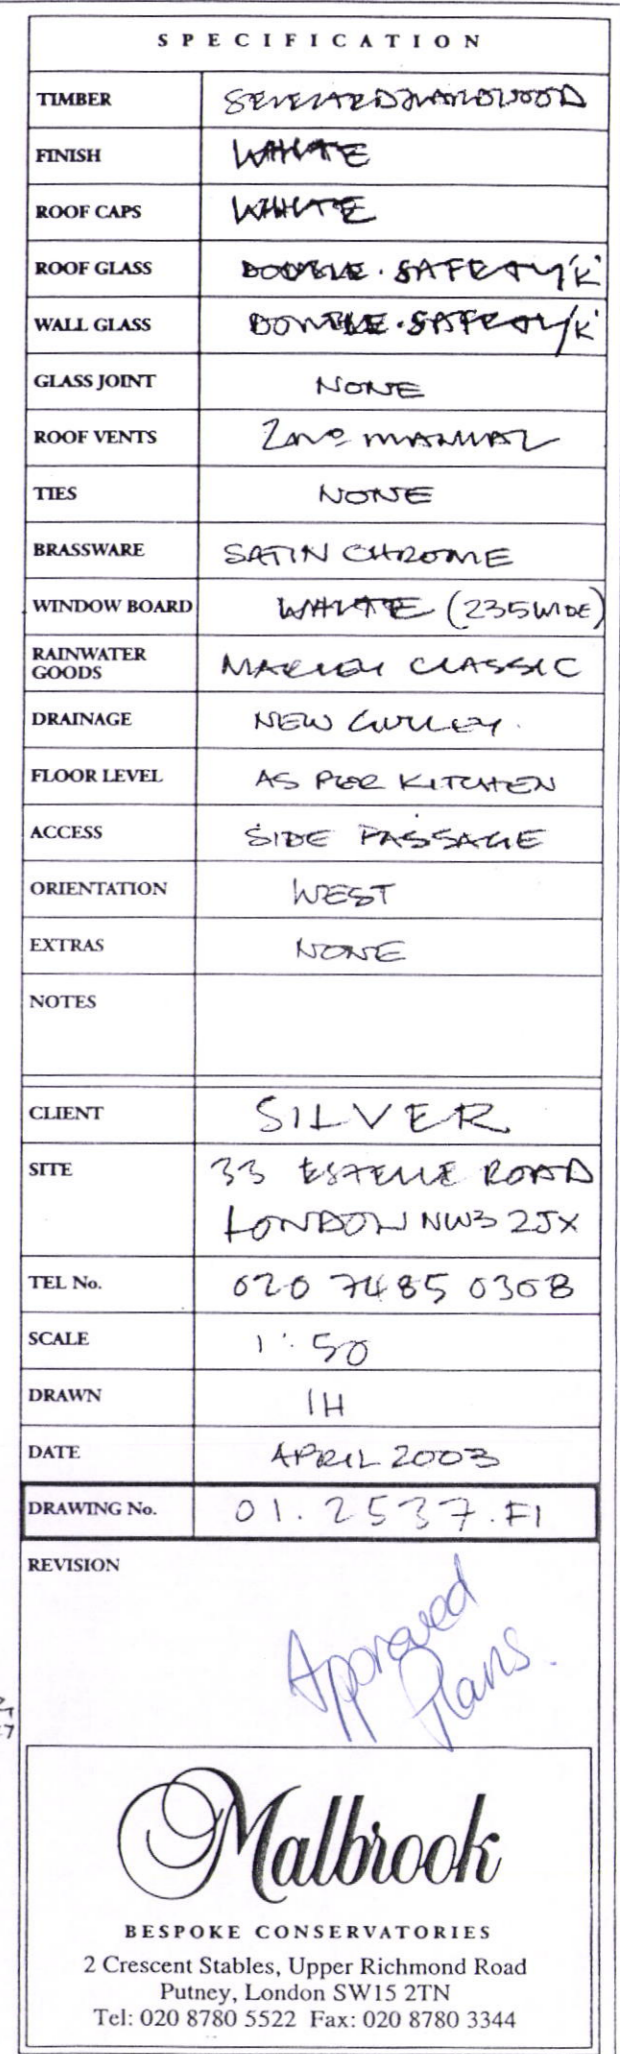 SPECIFICATION
TIMBER SELECTED HARDWOOD
FINISH WHITE
ROOF CAPS WHITE
ROOF GLASS DOUBLE. SAFETY 'K'
WALL GLASS DOUBLE. SAFETY 'K'
GLASS JOINT NONE
ROOF VENTS 2 No MANUAL
TIES NONE
BRASSWARE SATIN CHROME
WINDOW BOARD WHITE (235 WIDE)
RAINWATER GOODS MARLEY CLASSIC
DRAINAGE NEW GULLEY.
FLOOR LEVEL AS PER KITCHEN
ACCESS SIDE PASSAGE
ORIENTATION WEST
EXTRAS NONE
NOTES
CLIENT SILVER
SITE 33 ESTELLE ROAD
LONDON NW3 2JX
TEL No. 020 7485 0308
SCALE 1:50
DRAWN IH
DATE APRIL 2003
DRAWING No. 01.2537.F1
REVISION
Approved
Plans.
Malbrook
BESPOKE CONSERVATORIES
2 Crescent Stables, Upper Richmond Road
Putney, London SW15 2TN
Tel: 020 8780 5522 Fax: 020 8780 3344